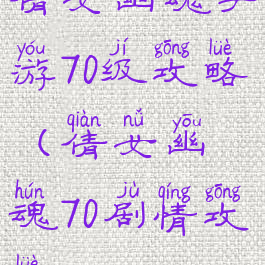 倩女幽魂手
yóu jí gōng lüè
游70级攻略
qiàn nǚ yōu
（倩女幽
hún jù qíng gōng
魂70剧情攻
lüè